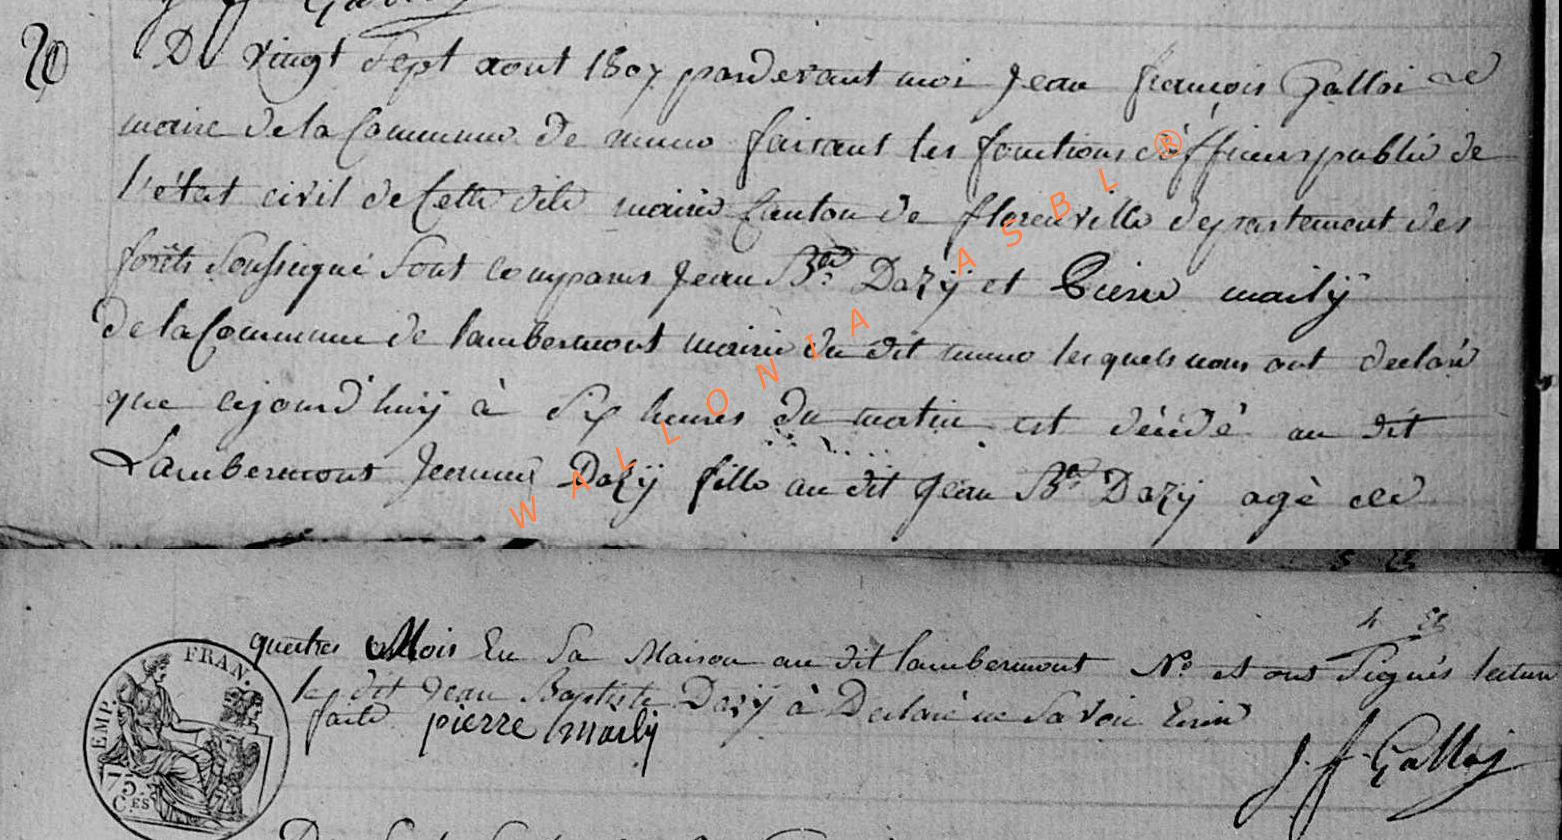 20
Du vingt Sept aout 1807 pardevant moi Jean françois Galloi Le
maire de la Commune de muno faisant les fonctions d'officier public de
l'état civil de Cette dite mairie Canton de florenville departement des
forêts Soussigné Sont comparus Jean Bte Dazÿ et Pierre marlÿ
de la Commune de lambermont mairie du dit muno les quels nous ont declaré
que cejourd'huÿ à Six heures du matin est décédé au dit
Lambermont Jeanne Dazÿ fille au dit Jean Bte Dazÿ agè de
quatres Mois En Sa Maison au dit lambermont No et ont Signés lecture
faite le dit Jean Baptiste Dazÿ à Declaré ne Savoir Ecrire
pierre marlÿ
J. f. Galloy
EMP. FRAN.
75. C.ES
WALLONIA ASBL ®